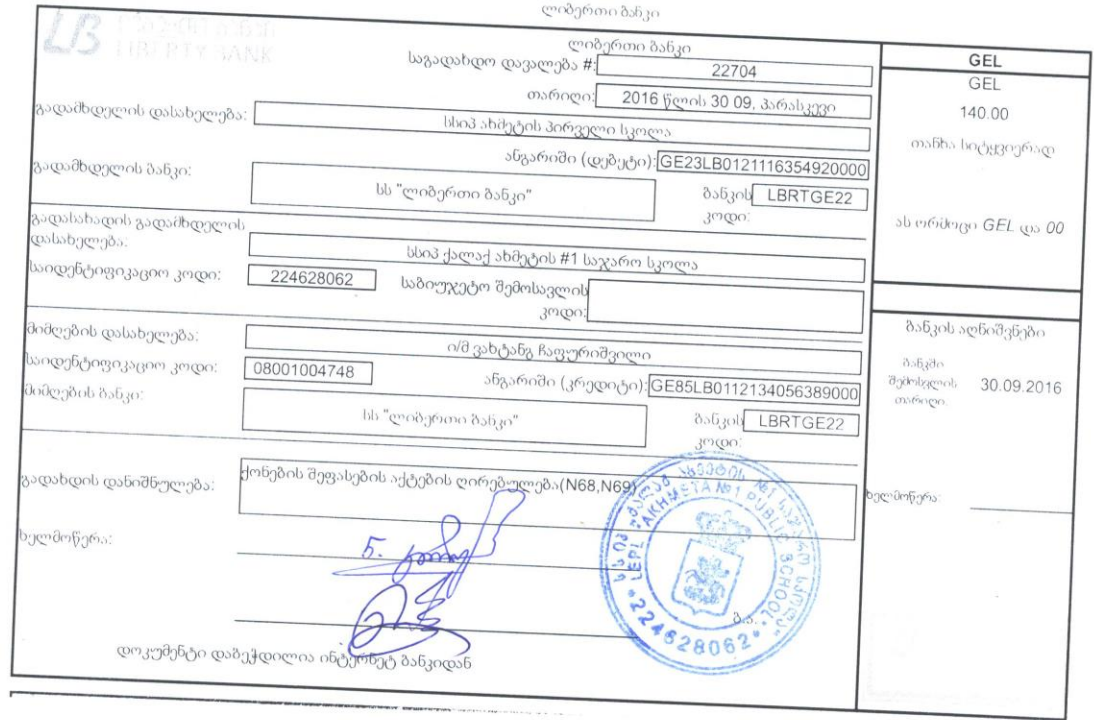 ლიბერთი ბანკი
LB LIBERTY BANK
ლიბერთი ბანკი
საგადახდო დავალება #: 22704
თარიღი: 2016 წლის 30 09, პარასკევი
გადამხდელის დასახელება: სსიპ ახმეტის პირველი სკოლა
ანგარიში (დებეტი): GE23LB0121116354920000
გადამხდელის ბანკი: სს "ლიბერთი ბანკი" ბანკის კოდი: LBRTGE22
გადასახადის გადამხდელის
დასახელება: სსიპ ქალაქ ახმეტის #1 საჯარო სკოლა
საიდენტიფიკაციო კოდი: 224628062 საბიუჯეტო შემოსავლის
კოდი:
მიმღების დასახელება: ი/მ ვახტანგ ჩაფურიშვილი
საიდენტიფიკაციო კოდი: 08001004748 ანგარიში (კრედიტი): GE85LB0112134056389000
მიმღების ბანკი: სს "ლიბერთი ბანკი" ბანკის კოდი: LBRTGE22
გადახდის დანიშნულება: ქონების შეფასების აქტების ღირებულება(N68,N69)
ხელმოწერა:
ბ.ა.
დოკუმენტი დაბეჭდილია ინტერნეტ ბანკიდან
GEL
GEL
140.00
თანხა სიტყვიერად
ას ორმოცი GEL და 00
ბანკის აღნიშვნები
ბანკში
შემოსვლის 30.09.2016
თარიღი
ხელმოწერა:
LEPL AKHMETA №1 PUBLIC SCHOOL
224628062